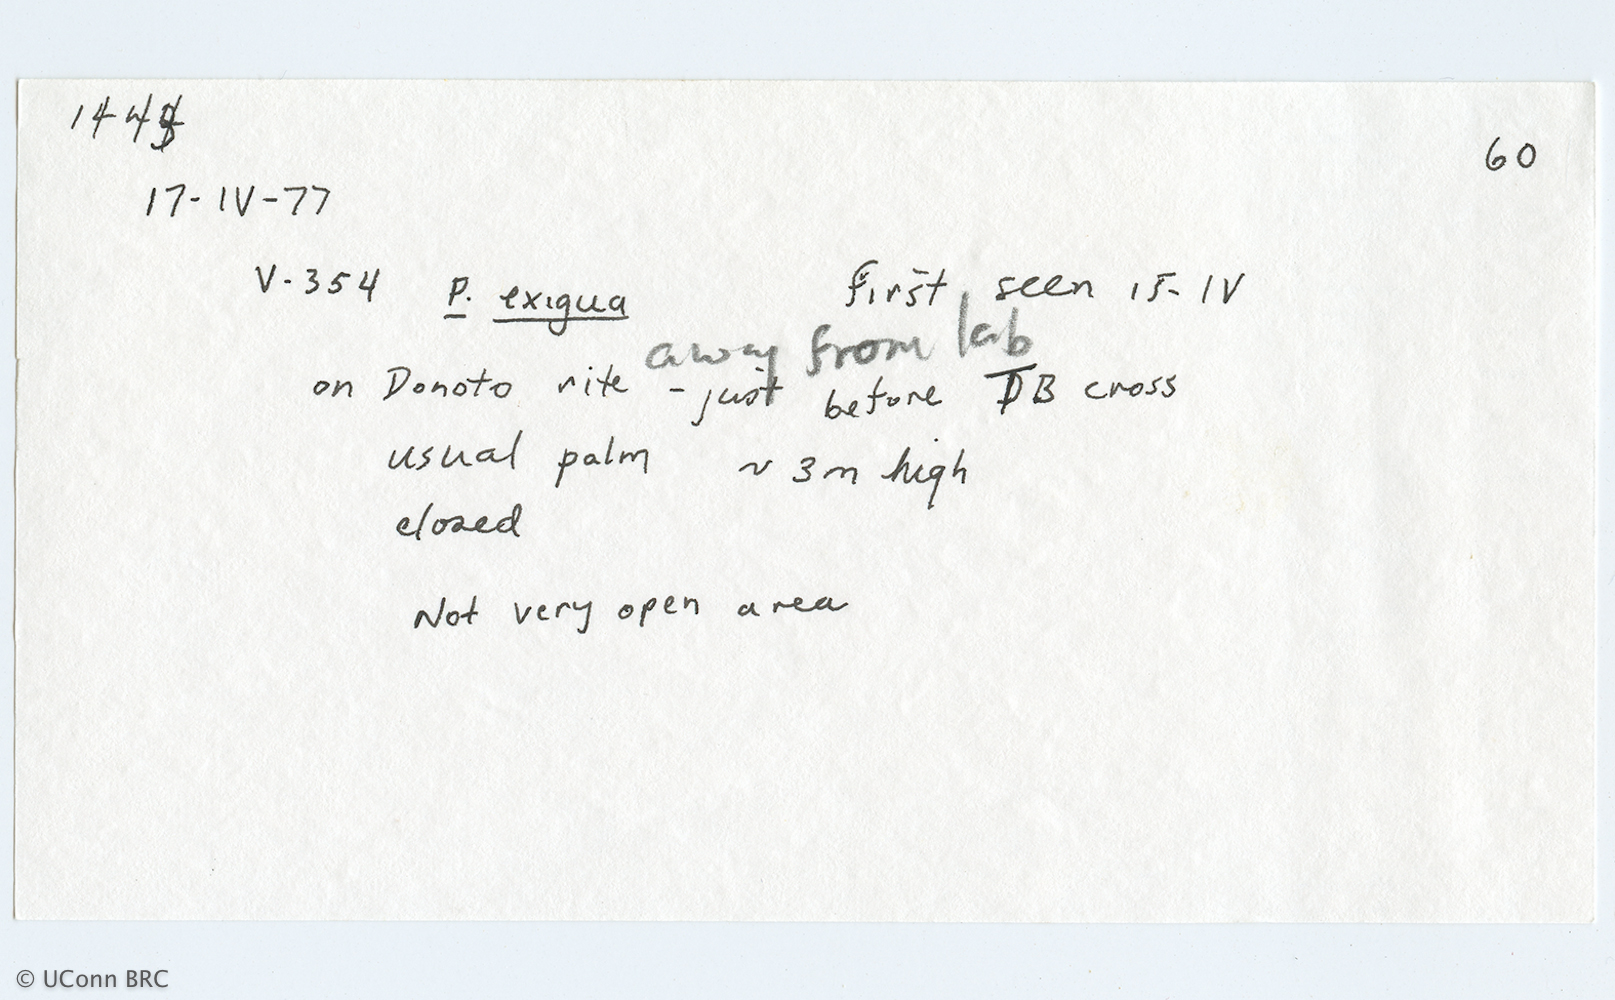 144
60
17-IV-77
V-354 P. exigua First seen 15-IV
away from lab
on Donoto rite - just before DB cross
usual palm ~ 3m high
closed
Not very open area
© UConn BRC